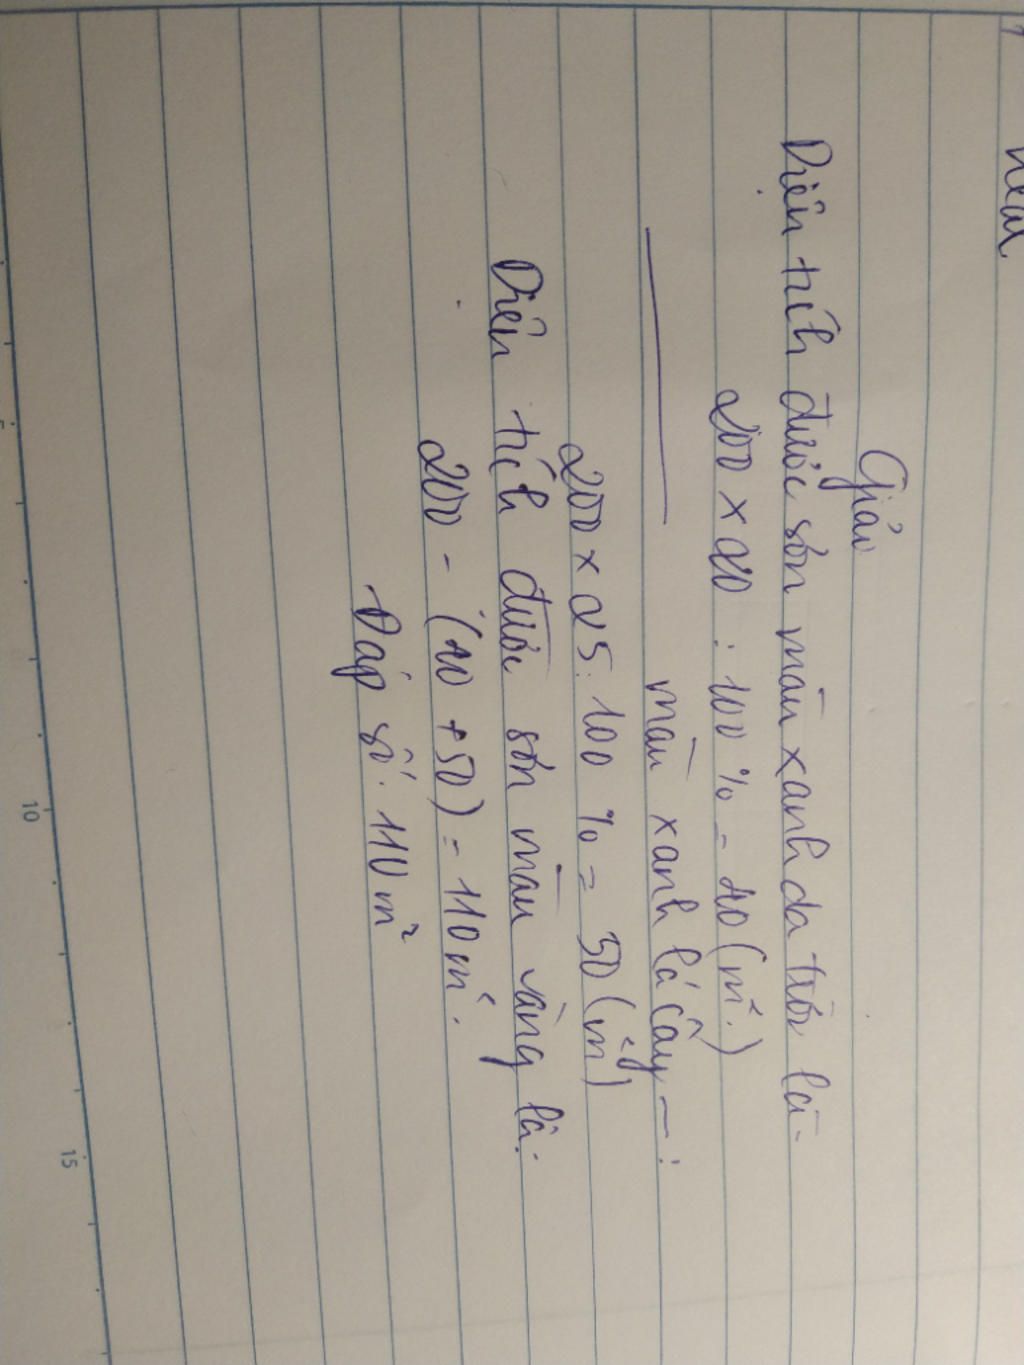 Giải
Diện tích được sơn màu xanh da trời là:
200 x 20 : 100 % = 40 (m².)
màu xanh lá cây — :
200 x 25 : 100 % = 50 (m²)
Diện tích được sơn màu vàng là:
200 - (40 + 50) = 110 m².
Đáp số: 110 m²
10
15